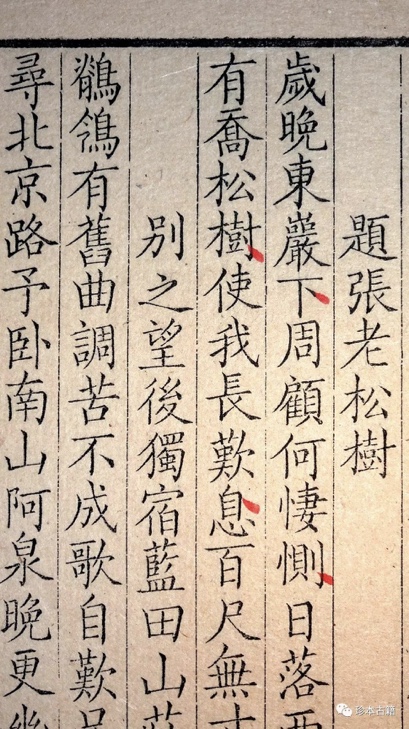 題張老松樹
歲晚東巖下周顧何悽惻日落西
有喬松樹使我長歎息百尺無寸
別之望後獨宿藍田山莊
鶺鴒有舊曲調苦不成歌自歎兄
尋北京路予卧南山阿泉晚更幽
珍本古籍